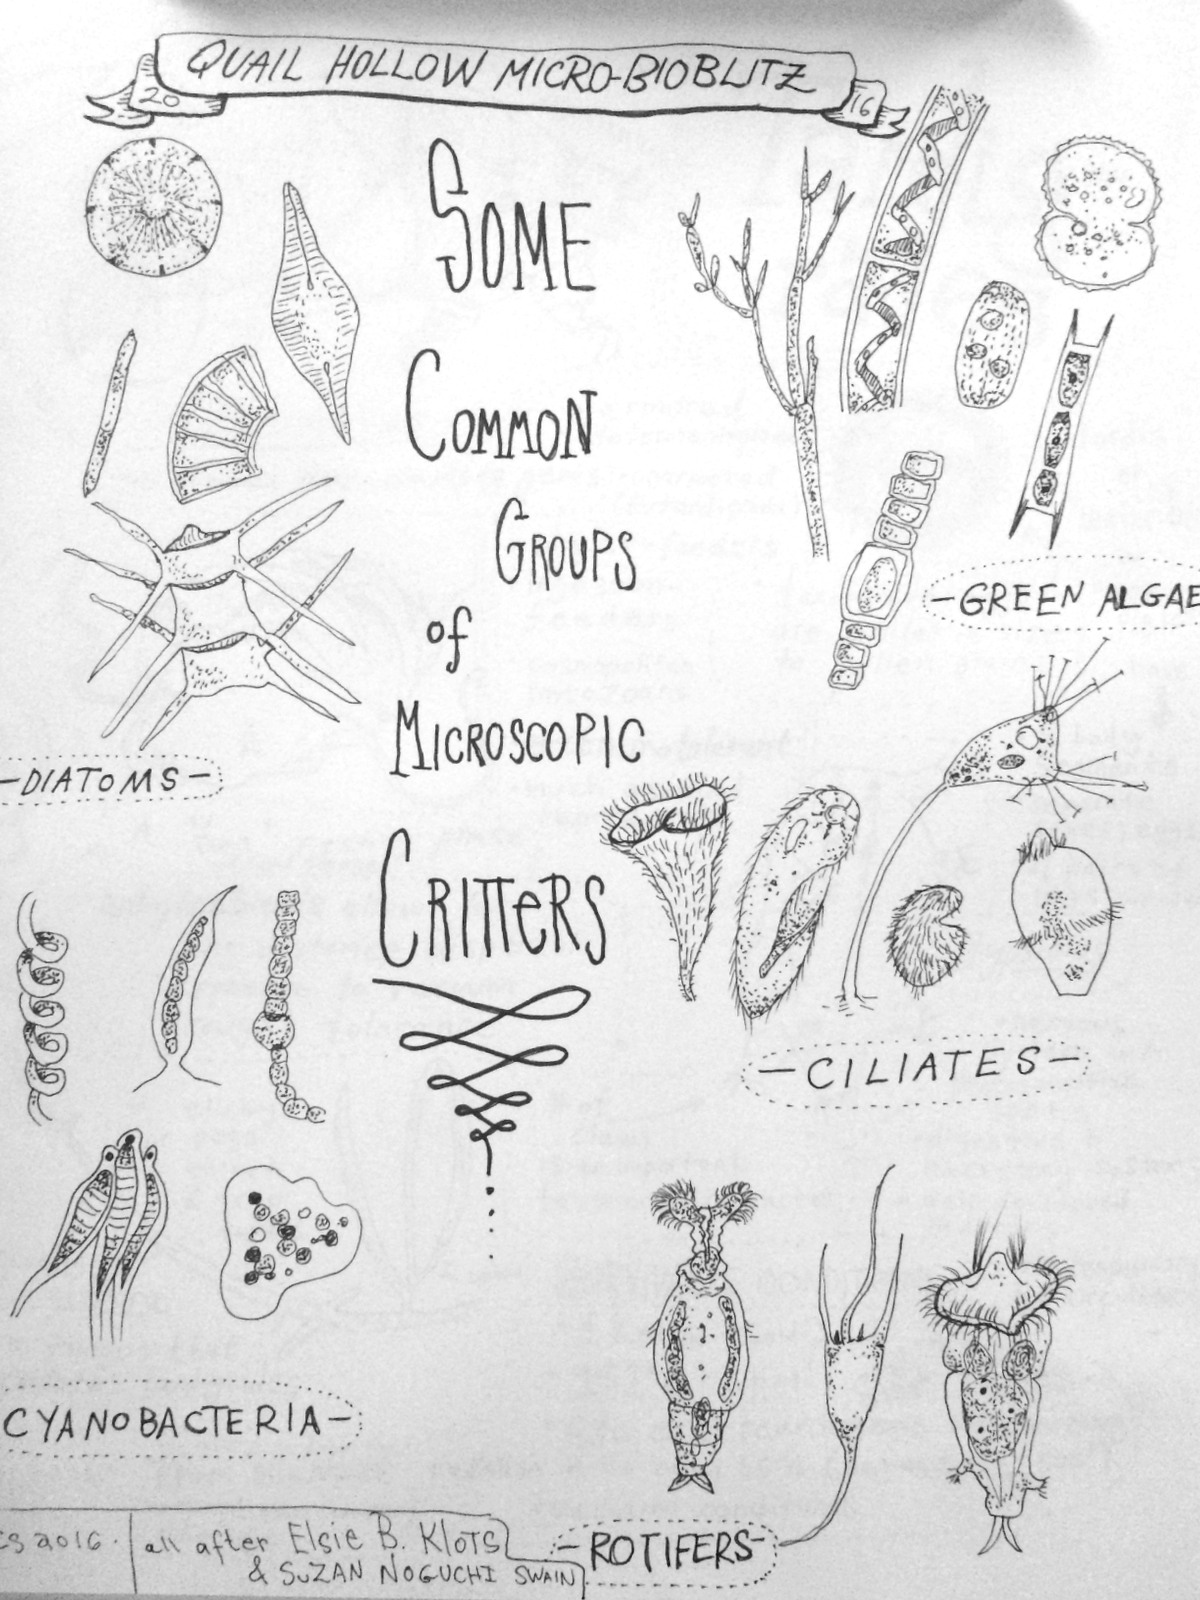 QUAIL HOLLOW MICRO-BIOBLITZ
20 16
SOME
COMMON
GROUPS
of
MICROSCOPIC
CRITTERS
-GREEN ALGAE
-DIATOMS-
-CILIATES-
CYANOBACTERIA-
-ROTIFERS-
2016.
all after Elsie B. Klots
& SUZAN NOGUCHI SWAIN